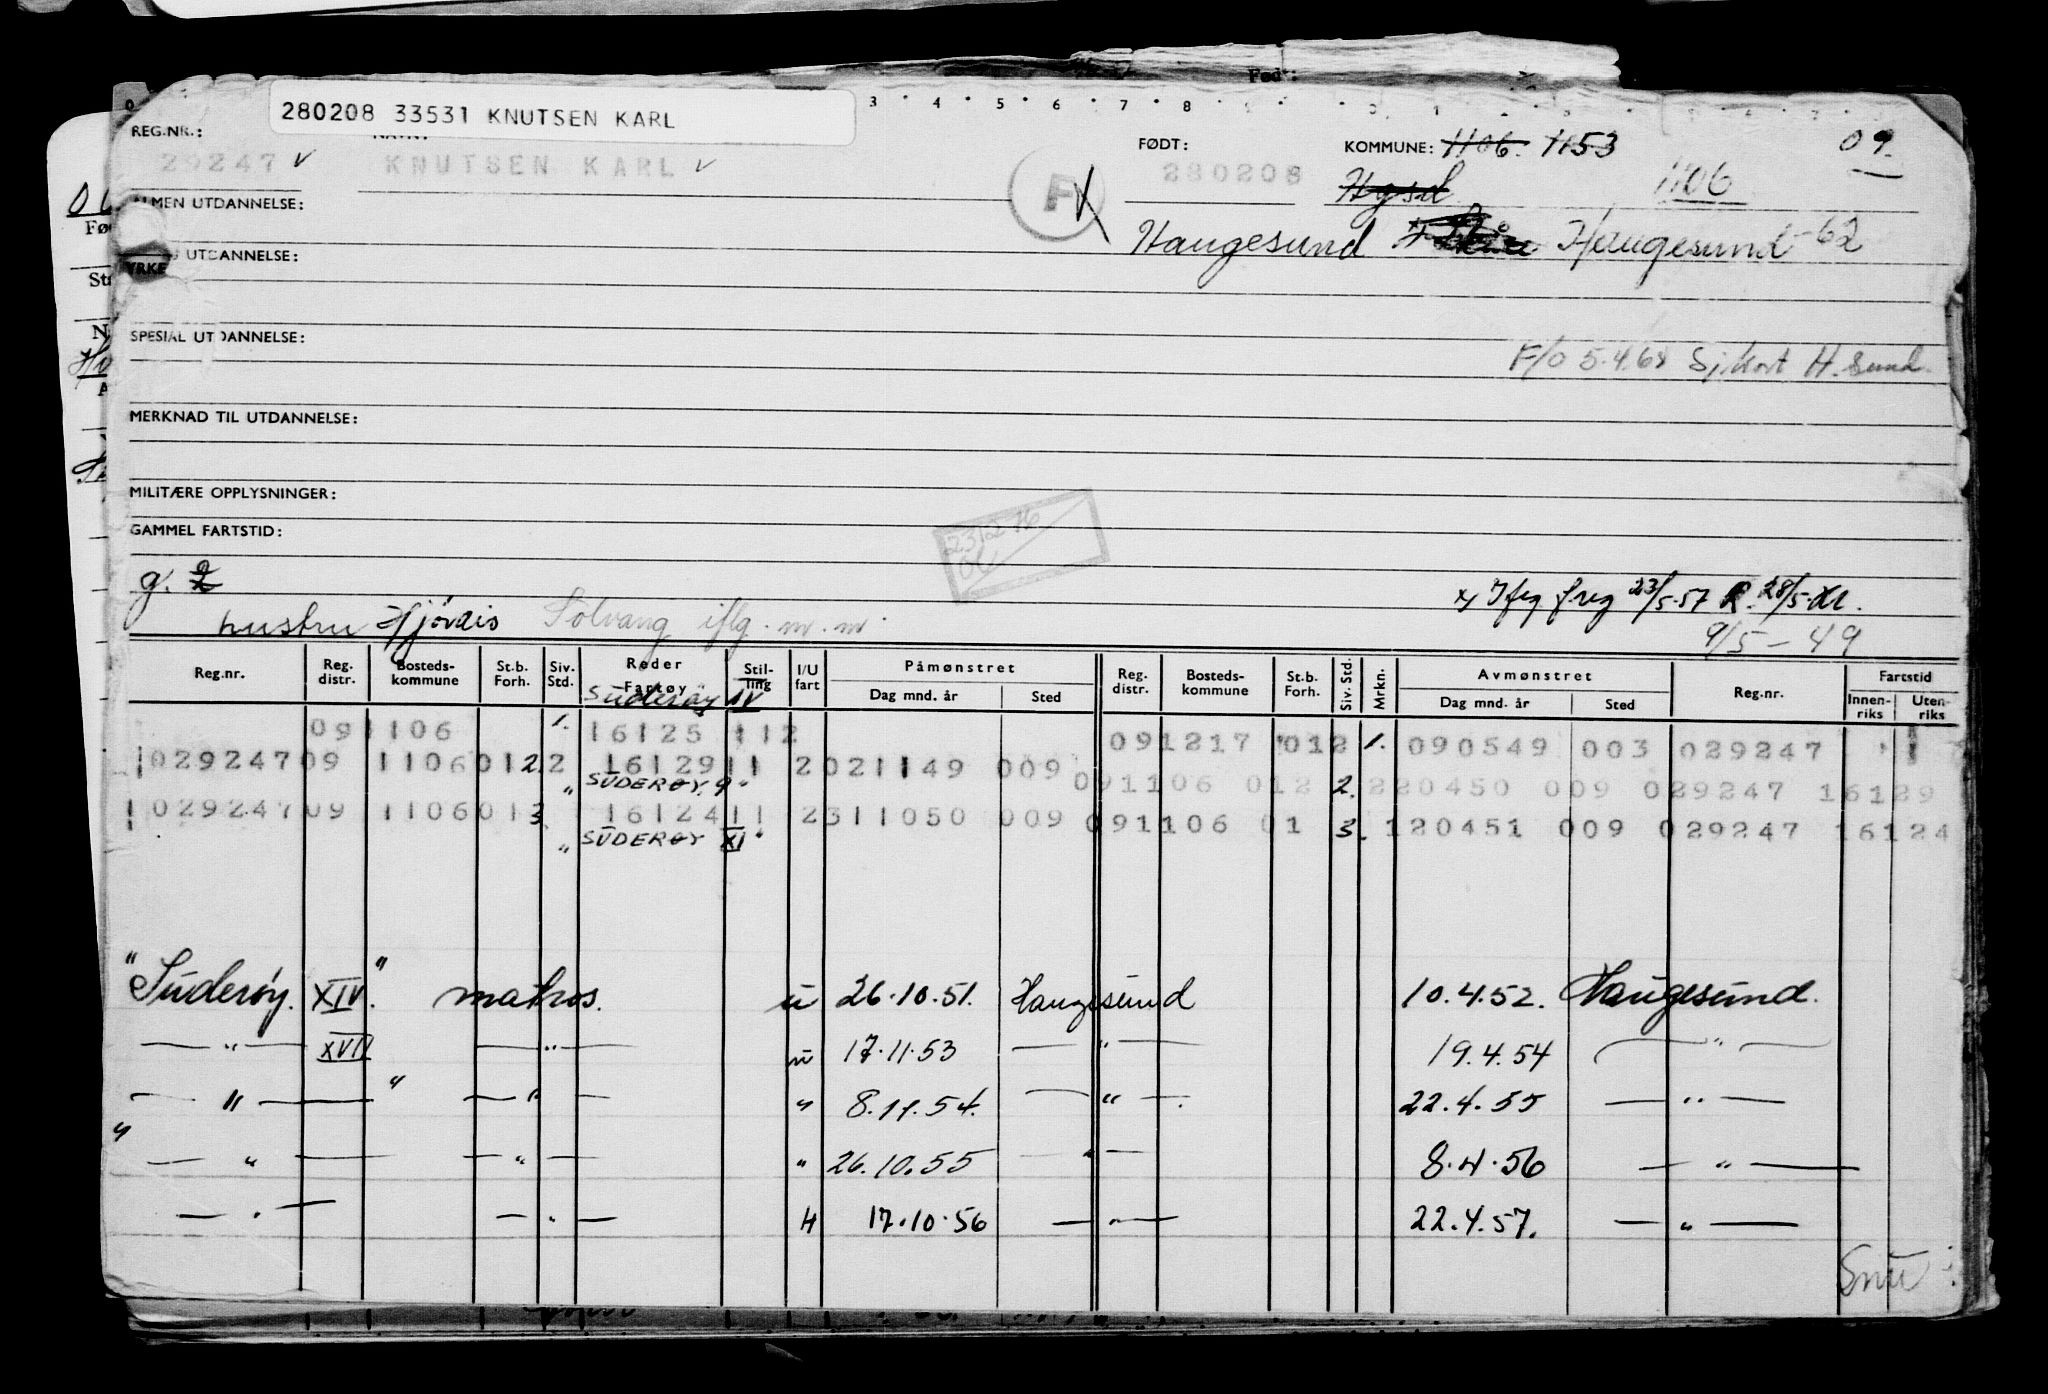 Født:
280208 33531 KNUTSEN KARL
3 4 5 6 7 8
REG.NR.: NAVN: FØDT: KOMMUNE: 1106. 1153 09.
29247 v KNUTSEN KARL v F 280208 Hgsd 1106
ALMEN UTDANNELSE:
Haugesund Haugesund -62
UTDANNELSE:
YRKE
SPESIAL UTDANNELSE:
F/o 5.4.68 Sj.kort H.Sund.
MERKNAD TIL UTDANNELSE:
MILITÆRE OPPLYSNINGER:
GAMMEL FARTSTID:
g. 2
hustru Hjördis Solvang iflg. m.m.
9/5-49
Reg.nr. Reg. distr. Bosteds-kommune St.b. Forh. Siv. Std. Reder Fartøy Stilling I/U fart Påmønstret Dag mnd. år Sted Reg. distr. Bosteds-kommune St.b. Forh. Siv. Std. Mrkn. Avmønstret Dag mnd. år Sted Reg.nr. Fartstid Innen-riks Uten-riks
Süderöy IV
091106 1. 16125 112 091217 012 1. 090549 003 029247
1029247 09 1106 012 2 16129 11 2 021149 009
" SÜDERØY. 9 " 091106 012 2. 220450 009 029247 16129
1029247 09 1106 013 16124 11 2 311050 009 091106 01 3. 120451 009 029247 16124
" SÜDERØY XI "
"Süderøy. XIV." matros. u 26.10.51. Haugesund 10.4.52. Haugesund.
— " — XVII — " — u 17.11.53 — " — 19.4.54 — " —
— " — " — " — " 8.11.54. — " — 22.4.55 — " —
" — " — — " — " 26.10.55 — " — 8.4.56 — " —
— " — — " — 17.10.56 — " — 22.4.57. — " —
Snu